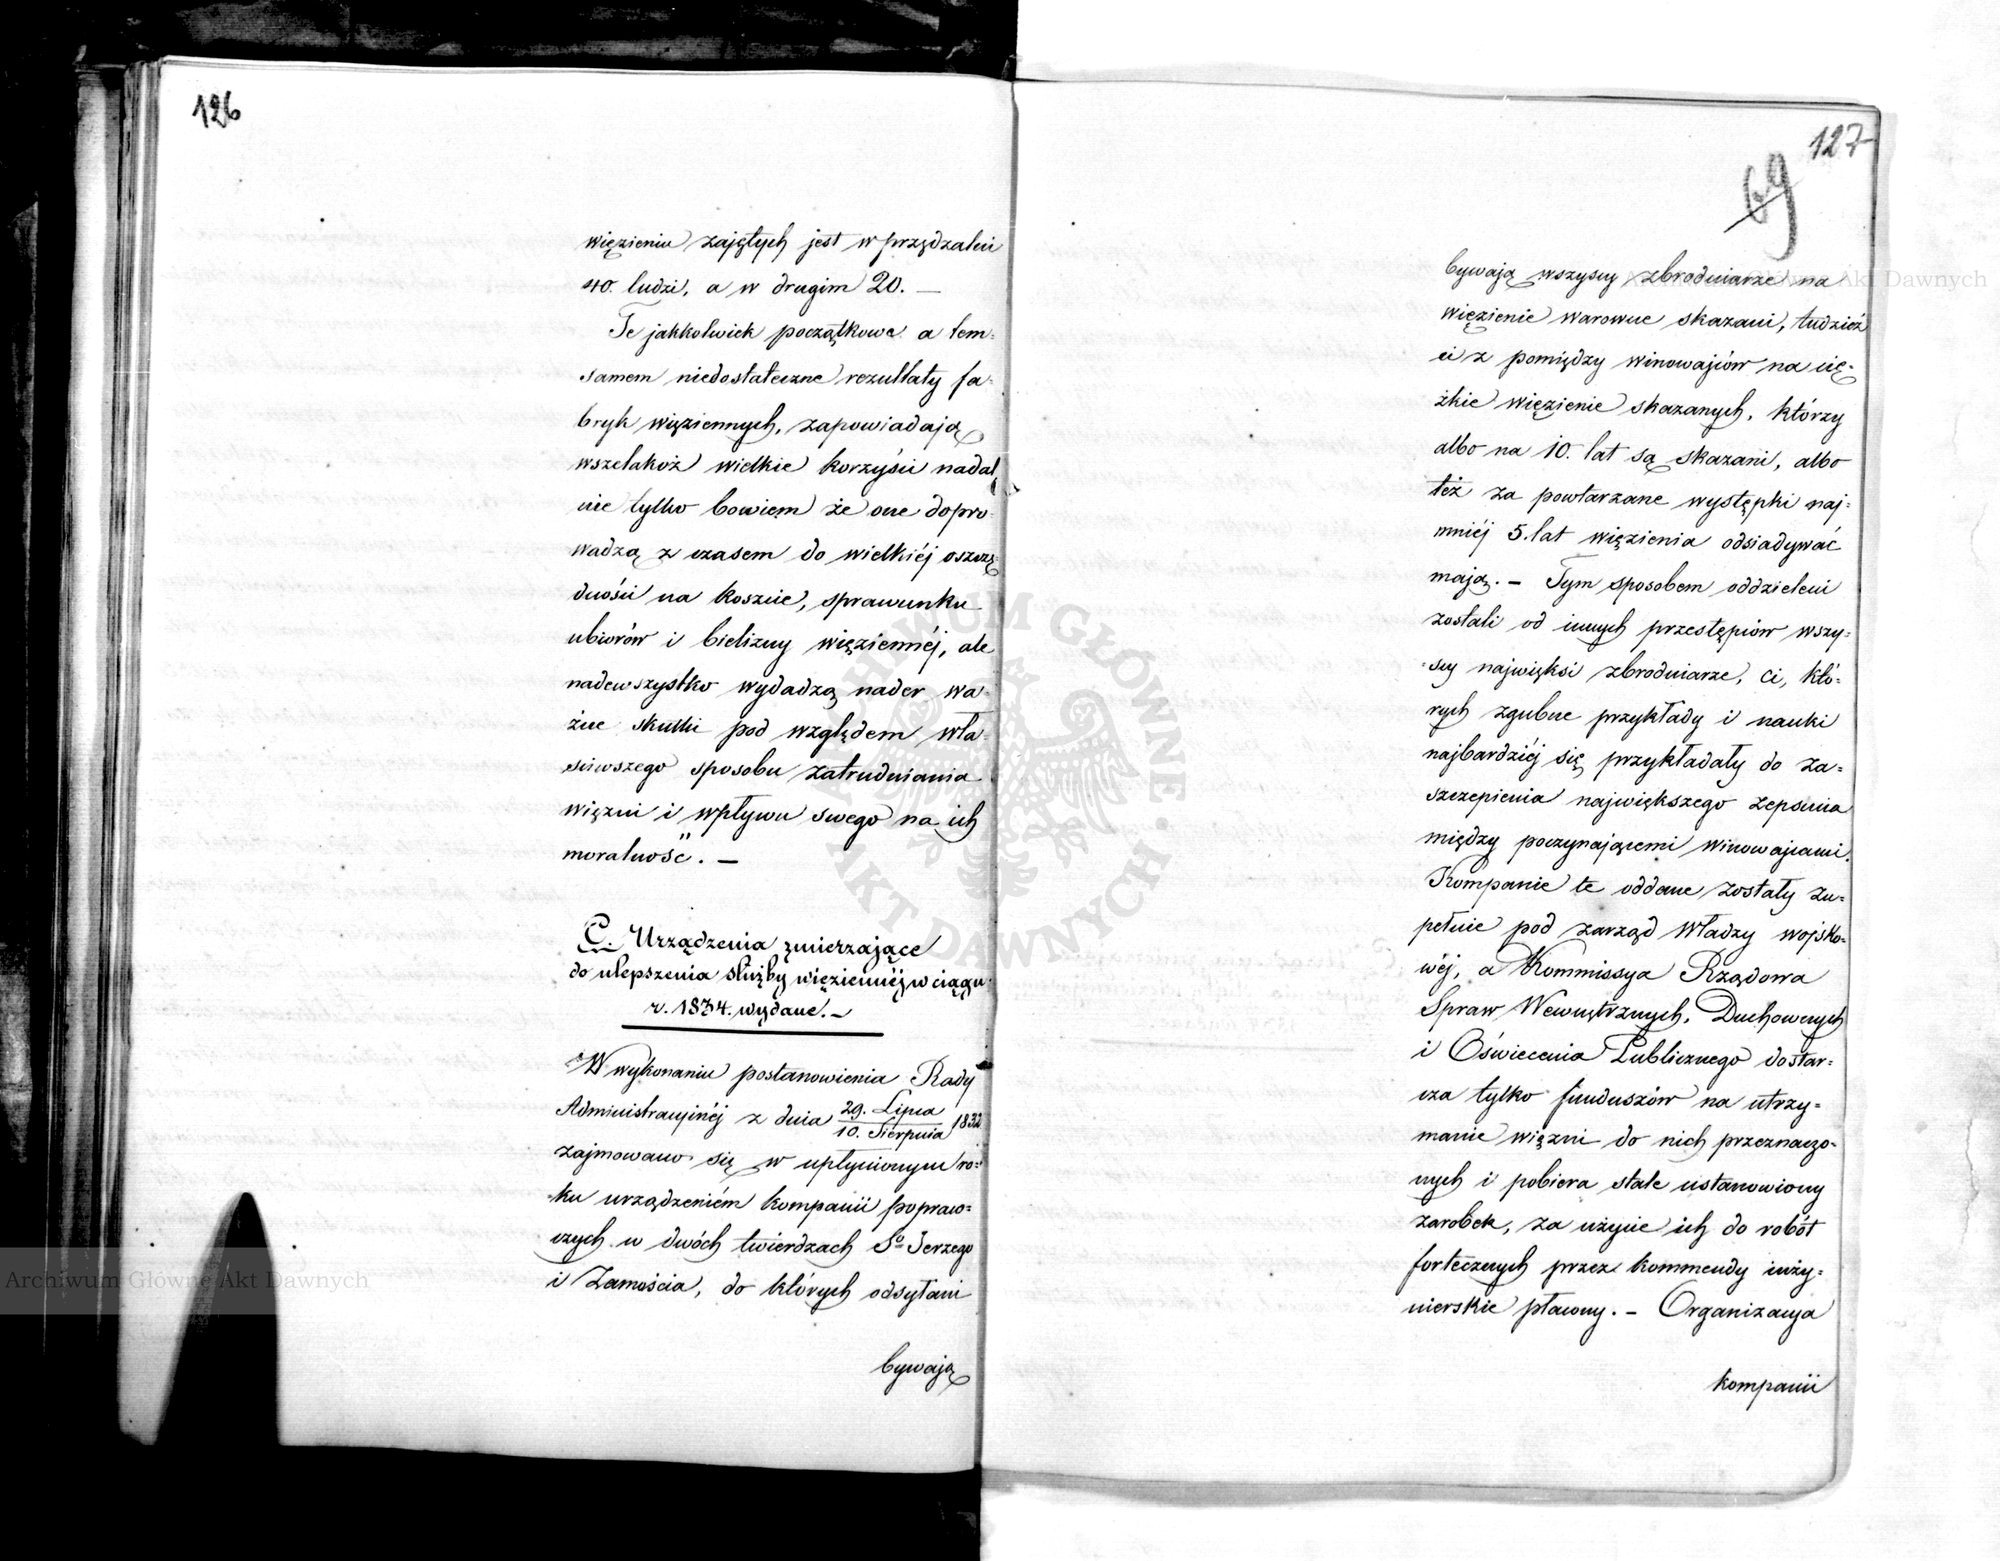 126
więzieniu zajętych jest w przędzalni
40. ludzi, a w drugim 20. —
Te jakkolwiek początkowe a tem-
samem niedostateczne rezultaty fa-
bryk więziennych, zapowiadają
wszelakoż wielkie korzyści nadal
nie tylko bowiem że one dopro-
wadzą z czasem do wielkiéj oszczę-
dności na koszcie, sprawunku
ubiorów i bielizny więziennéj, ale
nadewszystko wydadzą nader wa-
żne skutki pod względem wła-
ściwszego sposobu zatrudniania
więzni i wpływu swego na ich
moralność". —
C. Urządzenia zmierzające
do ulepszenia służby więziennéj w ciągu
r. 1834. wydane. —
W wykonaniu postanowienia Rady
Administracyjnéj z dnia 29. Lipca / 10. Sierpnia 1832
zajmowano się w upłynionym ro-
ku urządzeniém kompanii popraw-
czych w dwóch twierdzach Sº Jerzego
i Zamościa, do których odsyłani
bywają
127
69
bywają wszyscy zbrodniarze na
więzienie warowne skazani, tudzież
ci z pomiędzy winowajców na cię-
żkie więzienie skazanych, którzy
albo na 10. lat są skazani, albo
też za powtarzane występki naj-
mniéj 5. lat więzienia odsiadywać
mają. — Tym sposobem oddzieleni
zostali od innych przestępców wszy-
scy najwięksi zbrodniarze, ci, któ-
rych zgubne przykłady i nauki
najbardziéj się przykładały do za-
szczepienia największego zepsucia
między poczynającemi winowajcami.
Kompanie te oddane zostały zu-
pełnie pod zarząd Władzy wojsko-
wéj, a Kommissya Rządowa
Spraw Wewnętrznych, Duchownych
i Oświecenia Publicznego dostar-
cza tylko funduszów na utrzy-
manie więzni do nich przeznaczo-
nych i pobiera stale ustanowiony
zarobek, za użycie ich do robót
fortecznych przez kommendy inży-
nierskie płacony. — Organizacya
kompanii
Archiwum Główne Akt Dawnych
Archiwum Główne Akt Dawnych
ARCHIWUM GŁÓWNE · AKT DAWNYCH ·